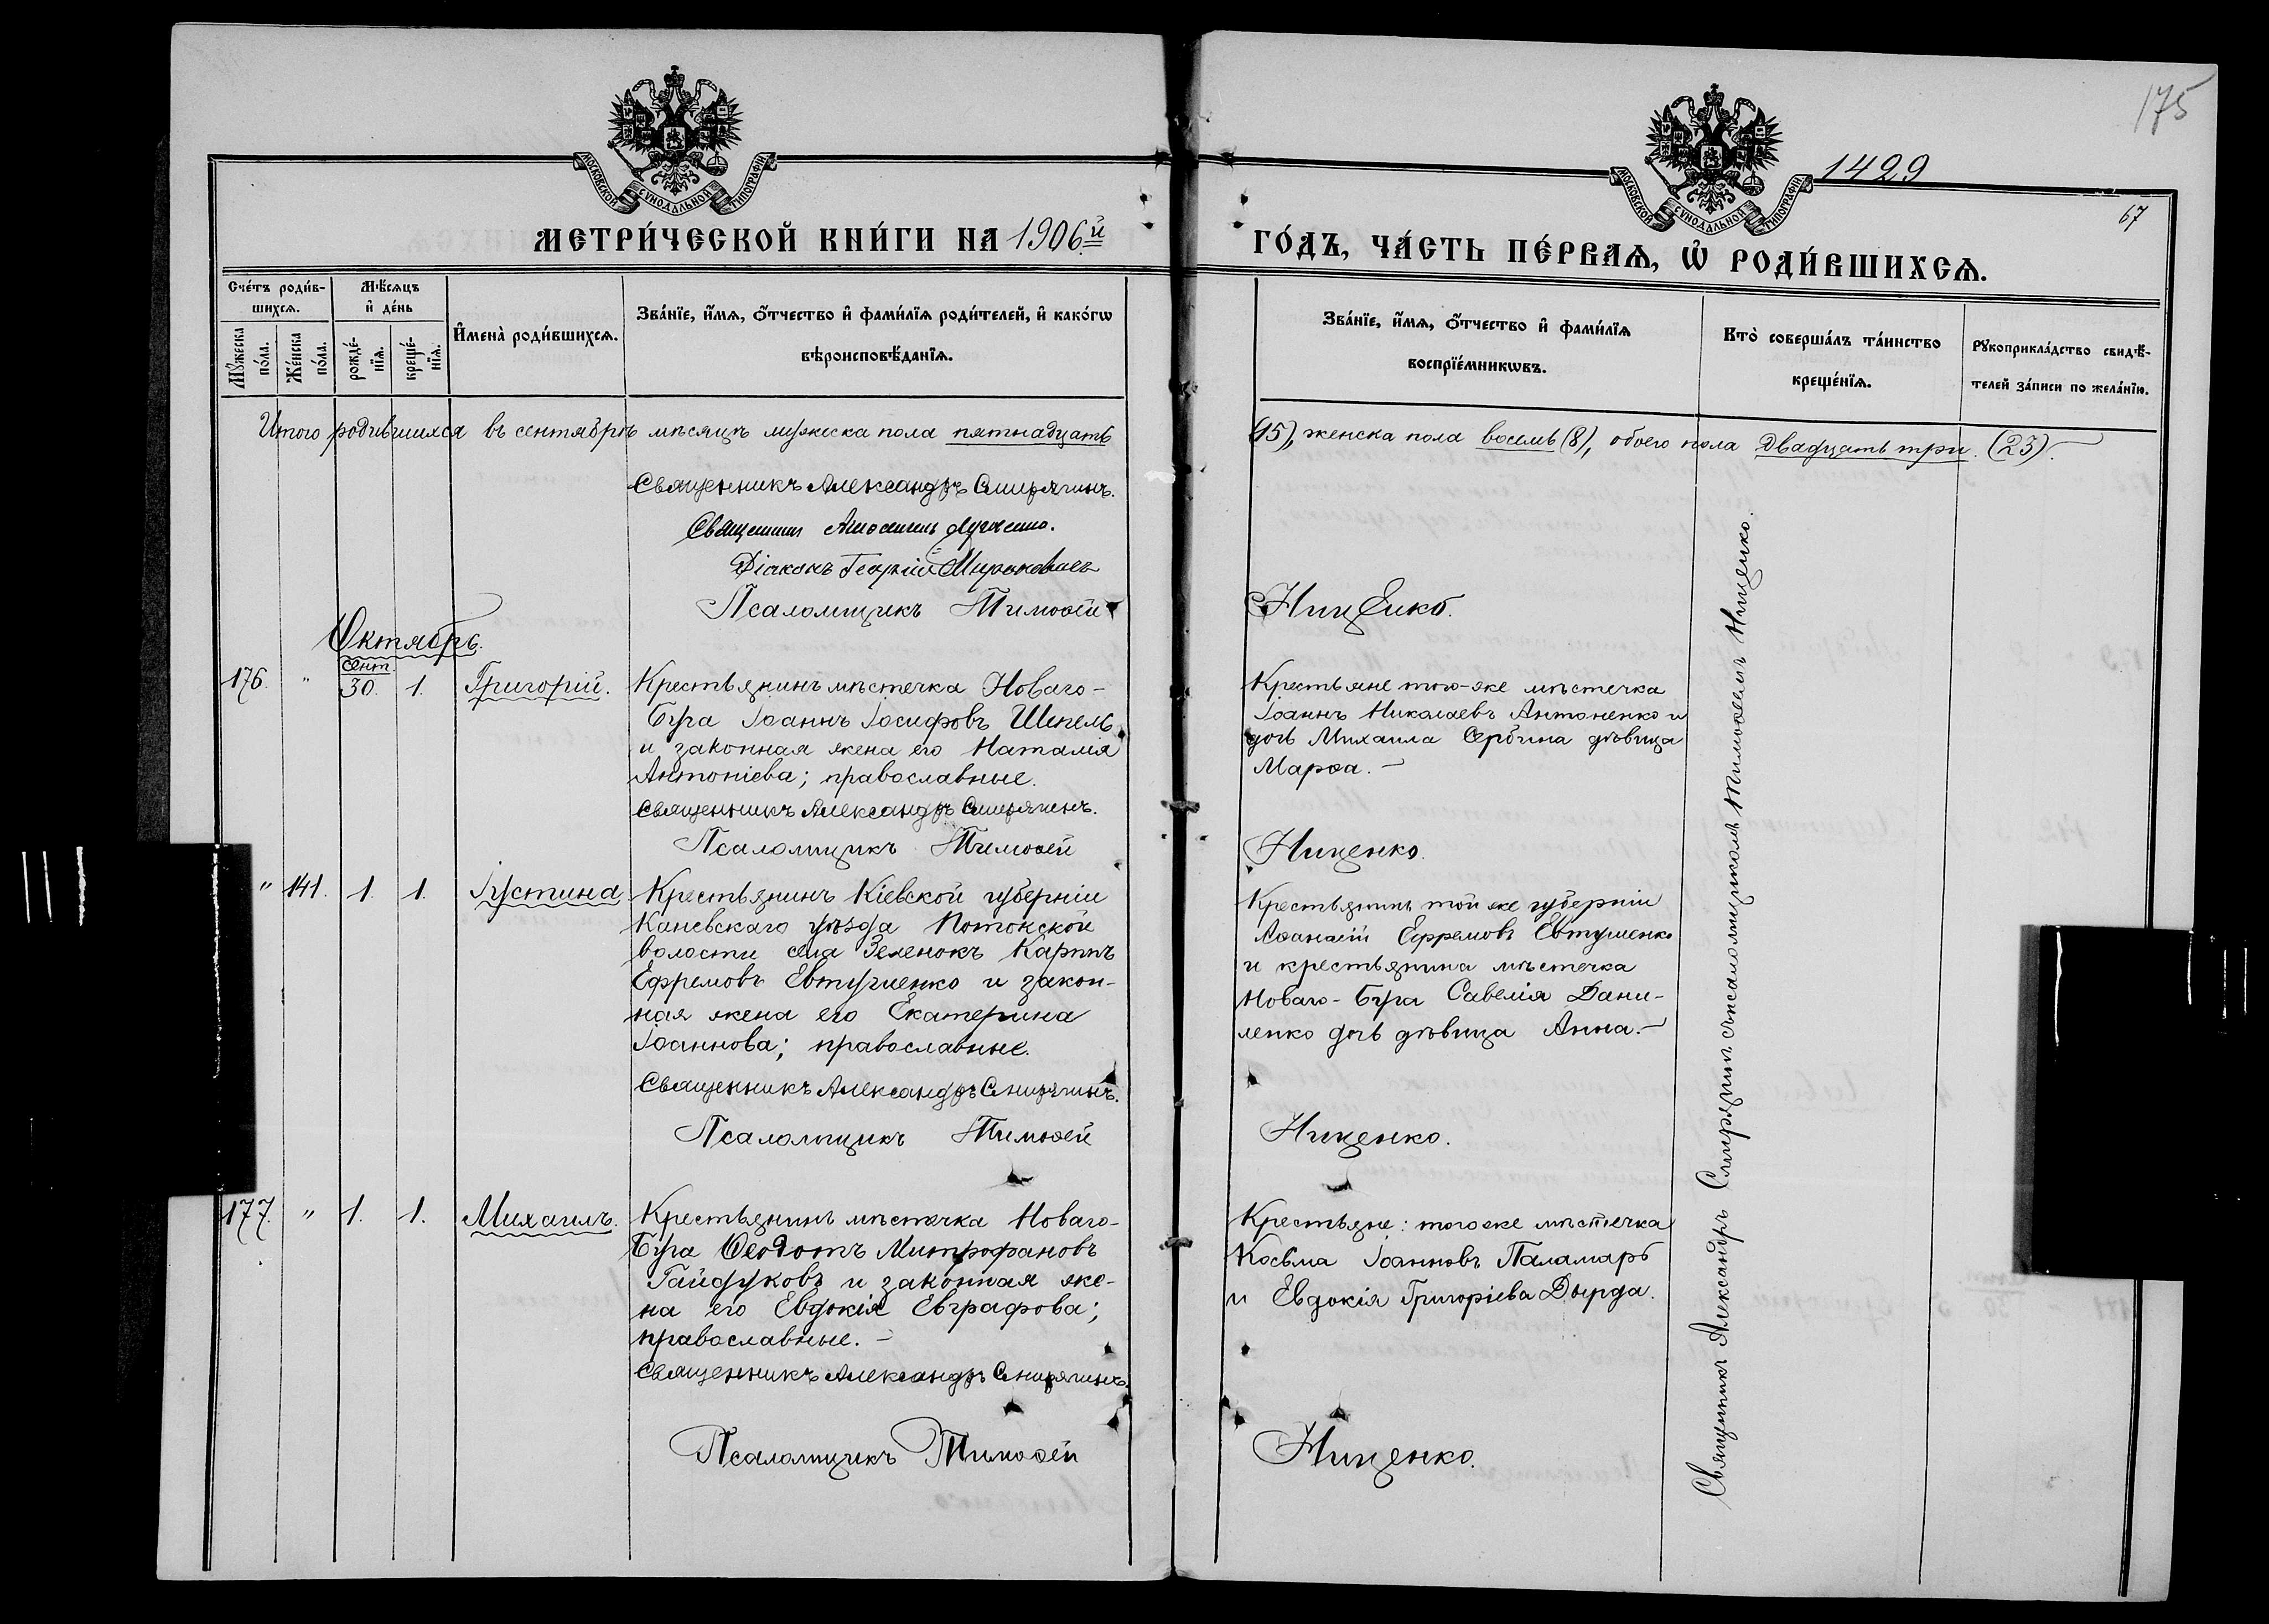 175
1429
67
МОСКОВСКОЙ СѴНОДАЛЬНОЙ ТИПОГРАФІИ
МОСКОВСКОЙ СѴНОДАЛЬНОЙ ТИПОГРАФІИ
МЕТРИ́ЧЕСКОЙ КНИ́ГИ НА 1906й
ГО́ДЪ, ЧА́СТЬ ПЕ́РВАЯ, Ѡ РОДИ́ВШИХСѦ.
Сче́тъ роди́в-
шихсѧ.
Мꙋ́жеска по́ла.
Же́нска по́ла.
Мѣ́сѧцъ
и҆ де́нь
рожде́-
нїѧ.
креще́-
нїѧ.
И҆мена̀ роди́вшихсѧ.
Зва́нїе, и҆́мѧ, ѻ҆́тчество и҆ фами́лїѧ роди́телей, и҆ како́гѡ
вѣроисповѣ́данїѧ.
Зва́нїе, и҆́мѧ, ѻ҆́тчество и҆ фами́лїѧ
воспрїе́мникѡвъ.
Кто̀ соверша́лъ та́инство
креще́нїѧ.
Рꙋкоприкла́дство свидѣ́-
телей за́писи по жела́нїю.
Итого родившихся въ сентябрѣ мѣсяцѣ мужеска пола пятнадцать (15), женска пола восемь (8), обоего пола двадцать три (23).
Священникъ Александръ Смирягинъ.
Священникъ
Діаконъ Георгій
Псаломщикъ Тимоѳей Нищенко.
Октябрь.
сент.
176. " 30. 1. Григорій.
Крестьянинъ мѣстечка Новаго-
Буга Іоаннъ Іосифовъ Шпель
и законная жена его Наталія
Антоніева; православные.
Священникъ Александръ Смирягинъ.
Псаломщикъ Тимоѳей Нищенко.
Крестьяне того-же мѣстечка
Іоаннъ Николаевъ Антоненко и
дочь Михаила Сербина дѣвица
Марѳа.
" 141. 1. 1. Іустина
Крестьянинъ Кіевской губерніи
Каневскаго уѣзда Потокской
волости села Зеленокъ Карпъ
Ефремовъ Евтушенко и закон-
ная жена его Екатерина
Іоаннова; православные.
Священникъ Александръ Смирягинъ.
Псаломщикъ Тимоѳей Нищенко.
Крестьянинъ той же губерніи
Аѳанасій Ефремовъ Евтушенко
и крестьянина мѣстечка
Новаго-Буга Савелія Дани-
ленко дочь дѣвица Анна.
177. " 1. 1. Михаилъ.
Крестьянинъ мѣстечка Новаго-
Буга Ѳеодотъ Митрофановъ
Гайдуковъ и законная же-
на его Евдокія Евграфова;
православные.
Священникъ Александръ Смирягинъ.
Псаломщикъ Тимоѳей Нищенко.
Крестьяне: того же мѣстечка
Косьма Іоанновъ Паламарь
и Евдокія Григоріева Дырда.
Священникъ Александръ Смирягинъ съ псаломщикомъ Тимоѳеемъ Нищенко.